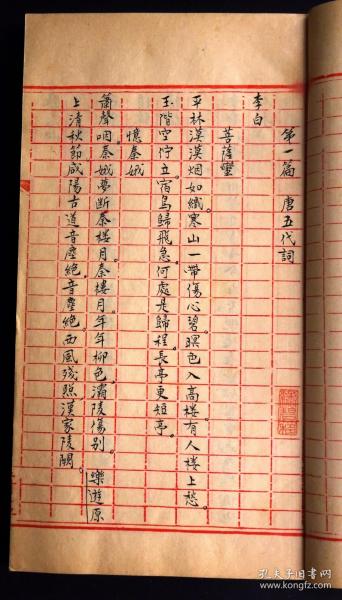 第一篇 唐五代詞
李白
菩薩蠻
平林漠漠烟如織。寒山一帶傷心碧。暝色入高樓。有人樓上愁。
玉階空佇立。宿鳥歸飛急。何處是歸程。長亭更短亭。
憶秦娥
簫聲咽。秦娥夢斷秦樓月。秦樓月。年年柳色。灞陵傷别。樂遊原
上清秋節。咸陽古道音塵絶。音塵絶。西風殘照。漢家陵闕。
孔夫子旧书网